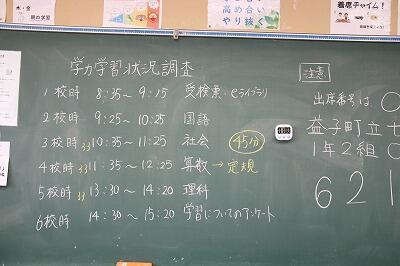 木・金
朝の学習
高め合い
やり抜く
着席チャイム!
学力学習状況調査
1校時 8:35~9:15 受検票・eライブラリ
2校時 9:25~10:25 国語
3校時 33 10:35~11:25 社会 45分
4校時 33 11:35~12:25 算数→定規
5校時 33 13:30~14:20 理科
6校時 14:30~15:20 学習についてのアンケート
注意
出席番号は0
益子町立七
1年2組0
621